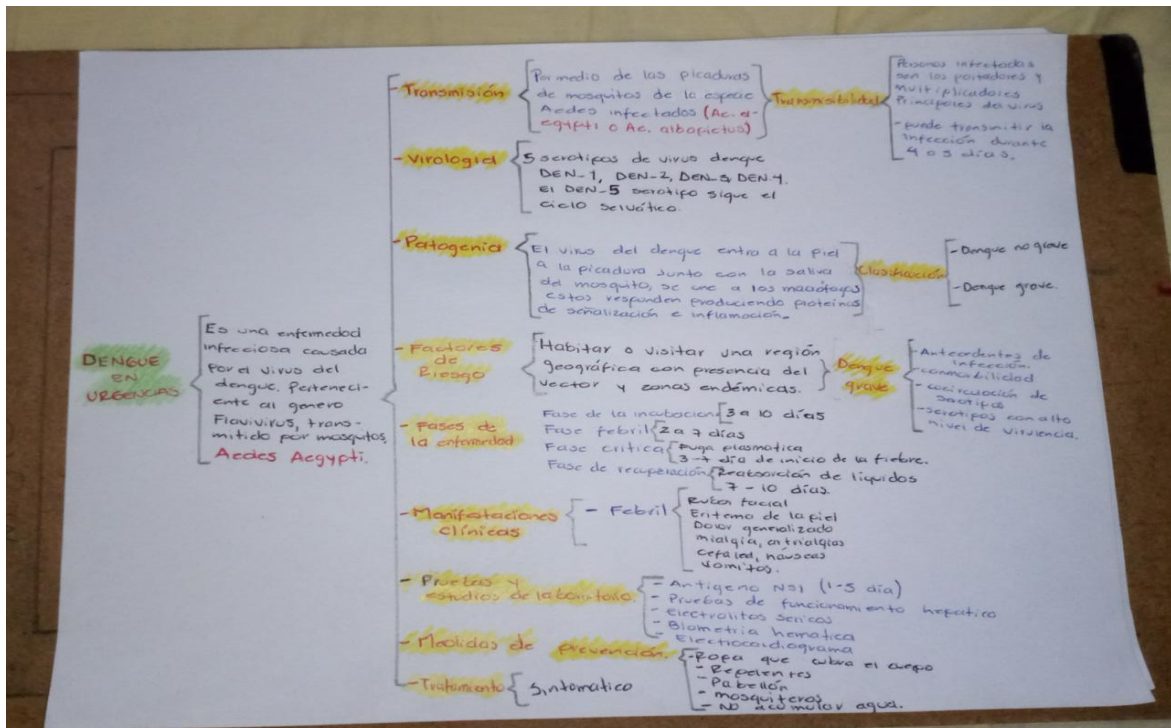 DENGUE
EN
URGENCIAS
Es una enfermedad
infecciosa causada
Por el virus del
dengue, Perteneci-
ente al genero
Flavivirus, trans-
mitido por mosquitos
Aedes Aegypti.
- Transmisión
Por medio de las picaduras
de mosquitos de la especie
Aedes infectados (Ae. a-
egypti o Ae. albopictus)
Transmisibilidad
Personas infectadas
son los portadores y
multiplicadores
Principales del virus
- puede transmitir la
infección durante
4 o 5 días.
- Virología
5 serotipos de virus dengue
DEN-1, DEN-2, DEN-3 DEN-4.
El DEN-5 serotipo sigue el
ciclo selvático.
- Patogenia
El virus del dengue entra a la piel
a la picadura junto con la saliva
del mosquito, se une a los macrófagos
estos responden produciendo proteinas
de señalización e inflamación.
Clasificación
- Dengue no grave
- Dengue grave.
- Factores
de
Riesgo
Habitar o visitar una región
geográfica con presencia del
vector y zonas endémicas.
Dengue
grave
- Antecedentes de
infección.
- comorbilidad
- cocirculación de
serotipos
- serotipos con alto
nivel de virulencia.
- Fases de
la enfermedad
Fase de la incubacion 3 a 10 días
Fase febril 2 a 7 días
Fase critica Fuga plasmatica
3-7 día de inicio de la fiebre.
Fase de recuperación Reabsorción de liquidos
7-10 días.
- Manifestaciones
clínicas
- Febril
Rubor facial
Eritema de la piel
Dolor generalizado
mialgia, artralgias
cefalea, náuseas
vomitos.
- Pruebas y
estudios de laboratorio
- Antigeno NS1 (1-5 día)
- Pruebas de funcionamiento hepatico
- Electrolitos sericos
- Biometria hematica
- Electrocardiograma
- Medidas de prevención.
- Ropa que cubra el cuerpo
- Repelentes
- Pabellón
- mosquiteros
- No acumular agua.
- Tratamiento
Sintomatico